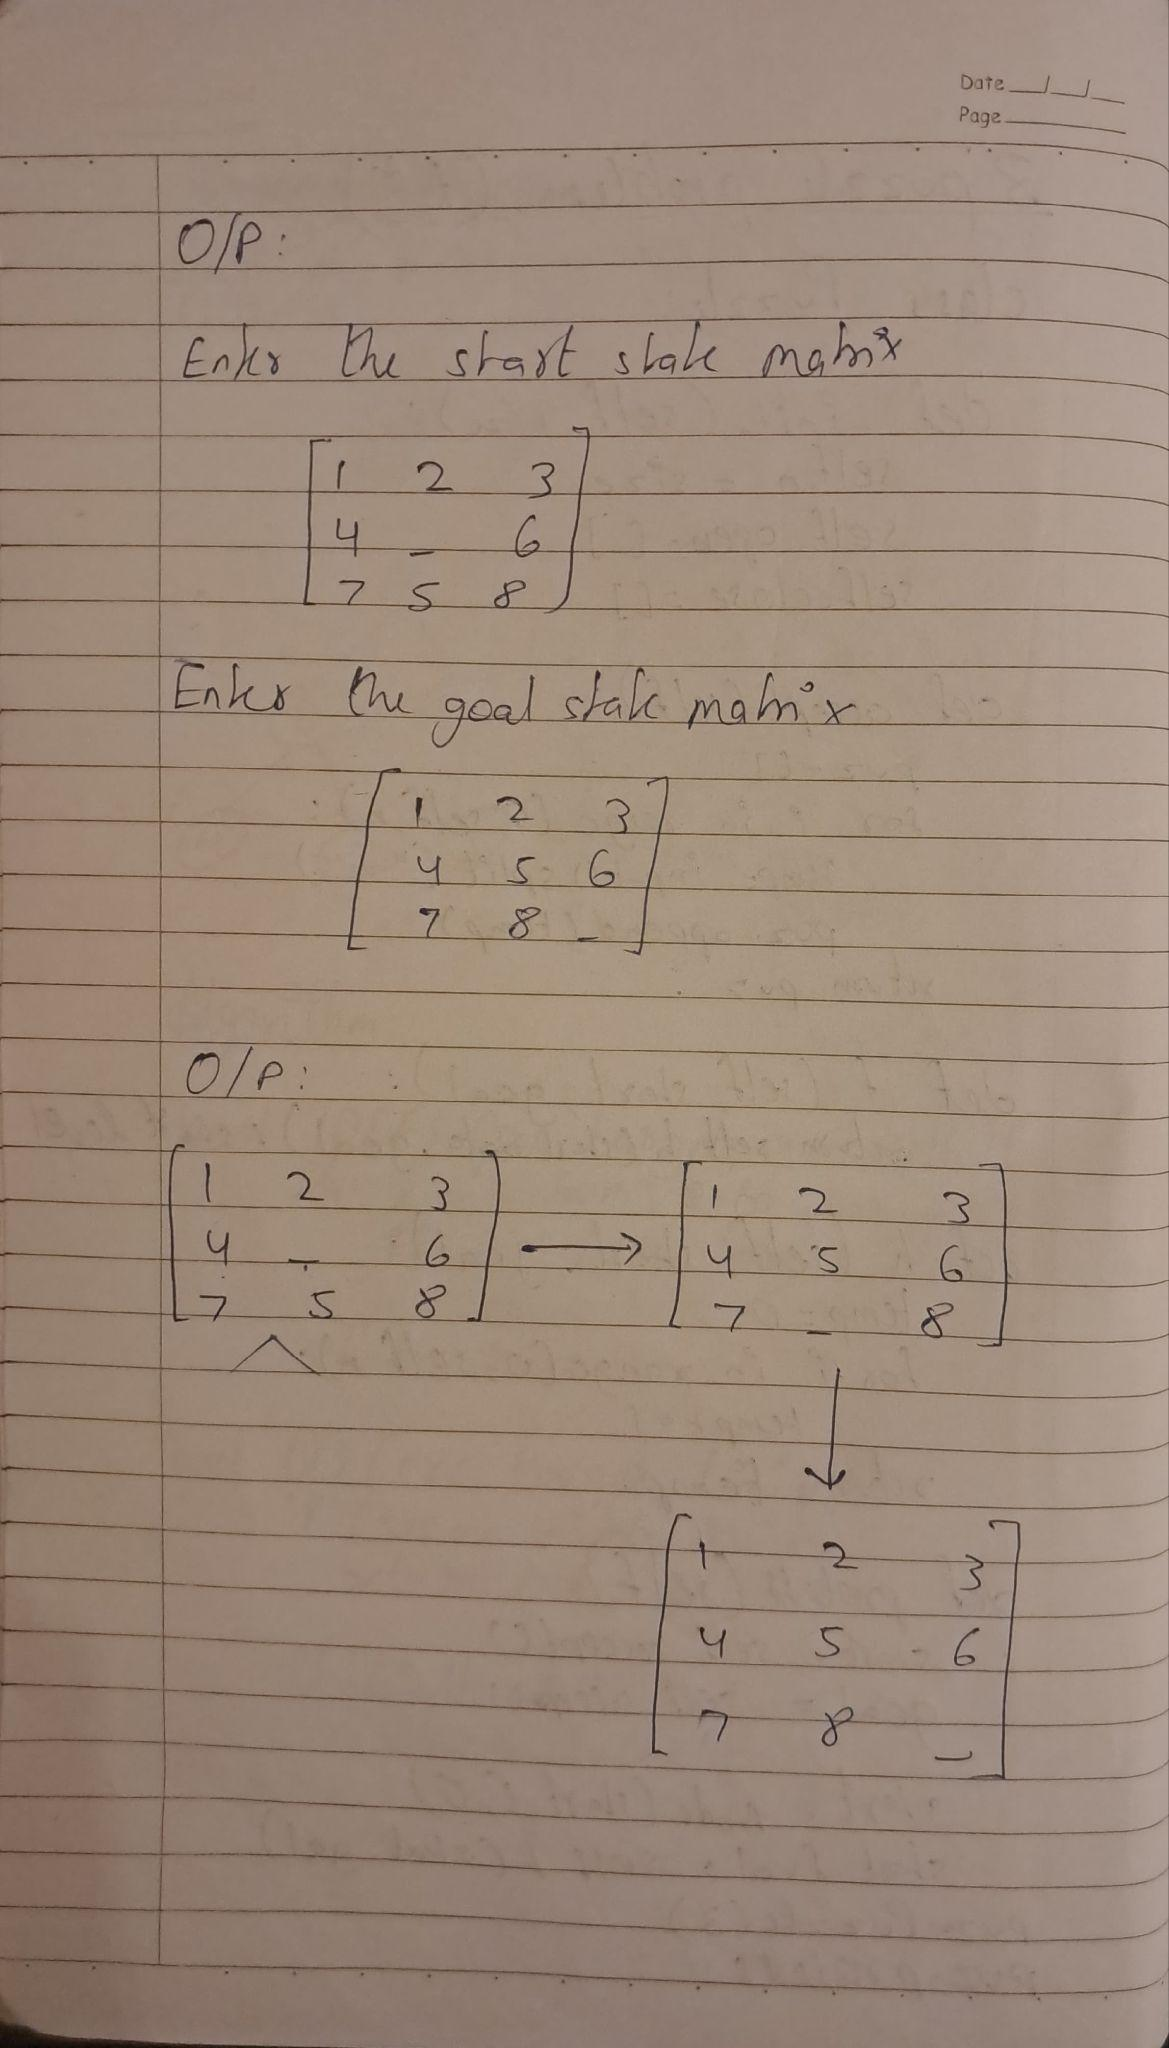 Date
Page
O/P:
Enter the start state matrix
1 2 3
4 _ 6
7 5 8
Enter the goal state matrix
1 2 3
4 5 6
7 8 _
O/P:
1 2 3 → 1 2 3
4 _ 6 4 5 6
7 5 8 7 _ 8
1 2 3
4 5 6
7 8 _